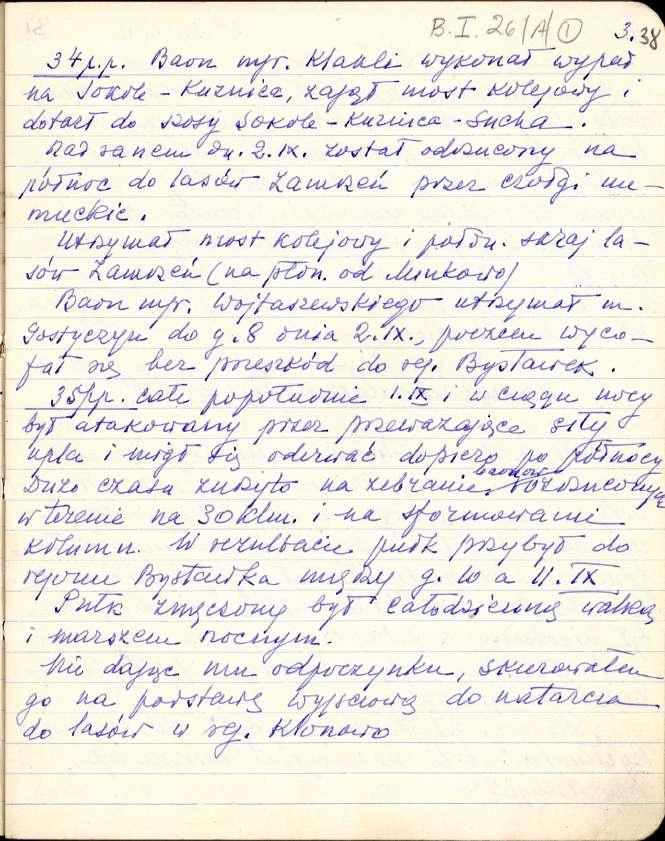 B.I. 26/A/1 3. 38
34 p.p. Baon mjr. Klakli wykonał wypad
na Sokole-Kuźnica, zajął most kolejowy i
dotarł do szosy Sokole-Kuźnica-Sucha.
Nad ranem dn. 2.IX. został odrzucony na
północ do lasów Zamrzeń przez czołgi nie-
mieckie.
Utrzymał most kolejowy i połdn. skraj la-
sów Zamrzeń (na płn. od Minkowo)
Baon mjr. Wojtaszewskiego utrzymał m.
Gostyczyn do g. 8 dnia 2.IX., poczem wyco-
fał się bez przeszkód do rej. Bysławek.
35 p.p. całe popołudnie 1.IX i w ciągu nocy
był atakowany przez przeważające siły
npla i mógł się oderwać dopiero po północy
Dużo czasu zużyto na zebranie baonów rozrzuconych
w terenie na 30 klm. i na sformowanie
kolumn. W rezultacie pułk przybył do
rejonu Bysławka między g. 10 a 11. IX
Pułk zmęczony był całodzienną walką
i marszem nocnym.
Nie dając mu odpoczynku, skierowałem
go na podstawę wyjściową do natarcia
do lasów w rej. Klonowo